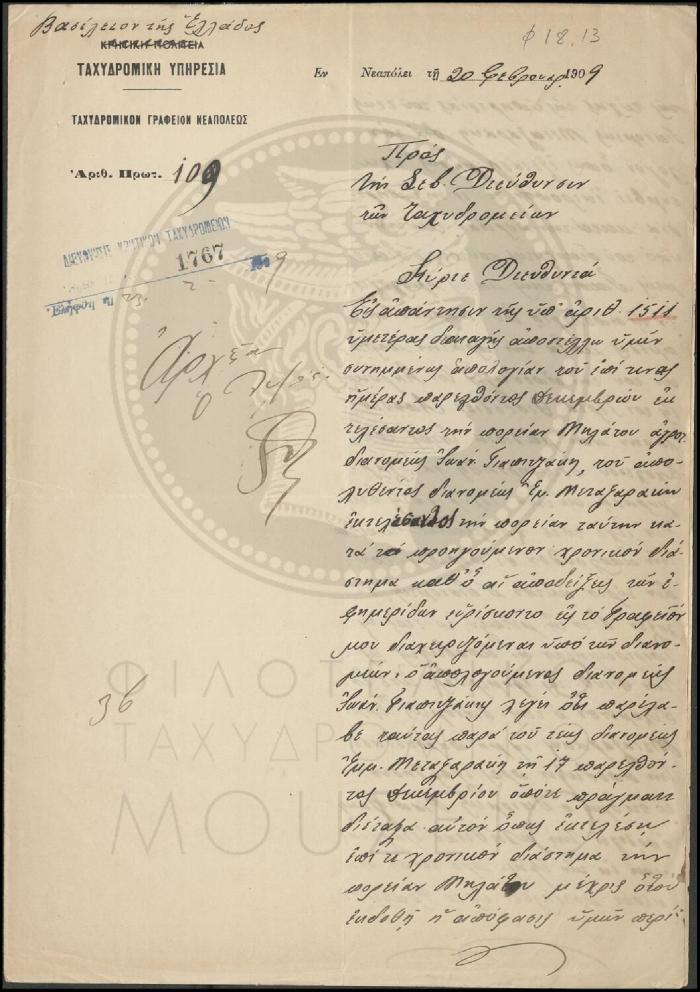 Βασίλειον τῆς Ἑλλάδος
ΚΡΗΤΙΚΗ ΠΟΛΙΤΕΙΑ
ΤΑΧΥΔΡΟΜΙΚΗ ΥΠΗΡΕΣΙΑ
ΤΑΧΥΔΡΟΜΙΚΟΝ ΓΡΑΦΕΙΟΝ ΝΕΑΠΟΛΕΩΣ
Ἀριθ. Πρωτ. 109
φ 18.13
Εν Νεαπόλει τῇ 20 Φεβρουαρ. 1909
ΔΙΕΥΘΥΝΣΙΣ ΚΡΗΤΙΚΩΝ ΤΑΧΥΔΡΟΜΕΙΩΝ
1767 1909
Ἀρχεῖα
36
Πρὸς
τὴν Σεβ. Διεύθυνσιν
τῶν Ταχυδρομείων
Κύριε Διευθυντά
Εἰς ἀπάντησιν τῆς ὑπ' ἀριθ. 1511
ὑμετέρας διαταγῆς ἀποστέλλω ὑμῖν
συνημμένως ἀπολογίαν τοῦ ἐπί τινας
ἡμέρας παρελθόντος Δεκεμβρίου ἐκ
τελέσαντος τὴν πορείαν Μηλάτου ἀγροτ.
διανομέως Ἰωάν. Γιαπιτζάκη, τοῦ ἀπο
λυθέντος διανομέως Ἐμ. Μεταξαράκη
ἐκτελέσαντος τὴν πορείαν ταύτην κα
τὰ τὸ προηγούμενον χρονικὸν διά
στημα καθ' ὃ αἱ ἀποδείξεις τῶν ἐ
φημερίδων εὑρίσκοντο εἰς τὸ Γραφεῖόν
μου διαχειριζόμεναι ὑπὸ τῶν διανο
μέων· ὁ ἀπολογούμενος διανομεὺς
Ἰωάν. Γιαπιτζάκης λέγει ὅτι παρέλα
βε ταύτας παρὰ τοῦ τέως διανομέως
Ἐμμ. Μεταξαράκη τῇ 17 παρελθόν
τος Δεκεμβρίου ὁπότε πράγματι
διέταξα αὐτὸν ὅπως ἐκτελέσῃ
ἐπί τι χρονικὸν διάστημα τὴν
πορείαν Μηλάτου μέχρις ὅτου
ἐκδοθῇ ἡ ἀπόφασις ὑμῶν περὶ
ΦΙΛΟΤΕΛ
ΤΑΧΥΔΡ
ΜΟΥ